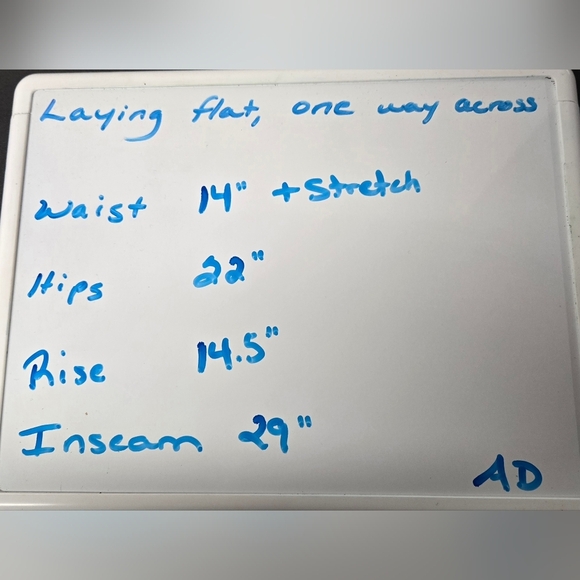 Laying flat, one way across
Waist 14" + Stretch
Hips 22"
Rise 14.5"
Inseam 29"
AD